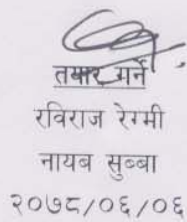 तयार गर्ने
रविराज रेग्मी
नायब सुब्बा
२०७८/०६/०६